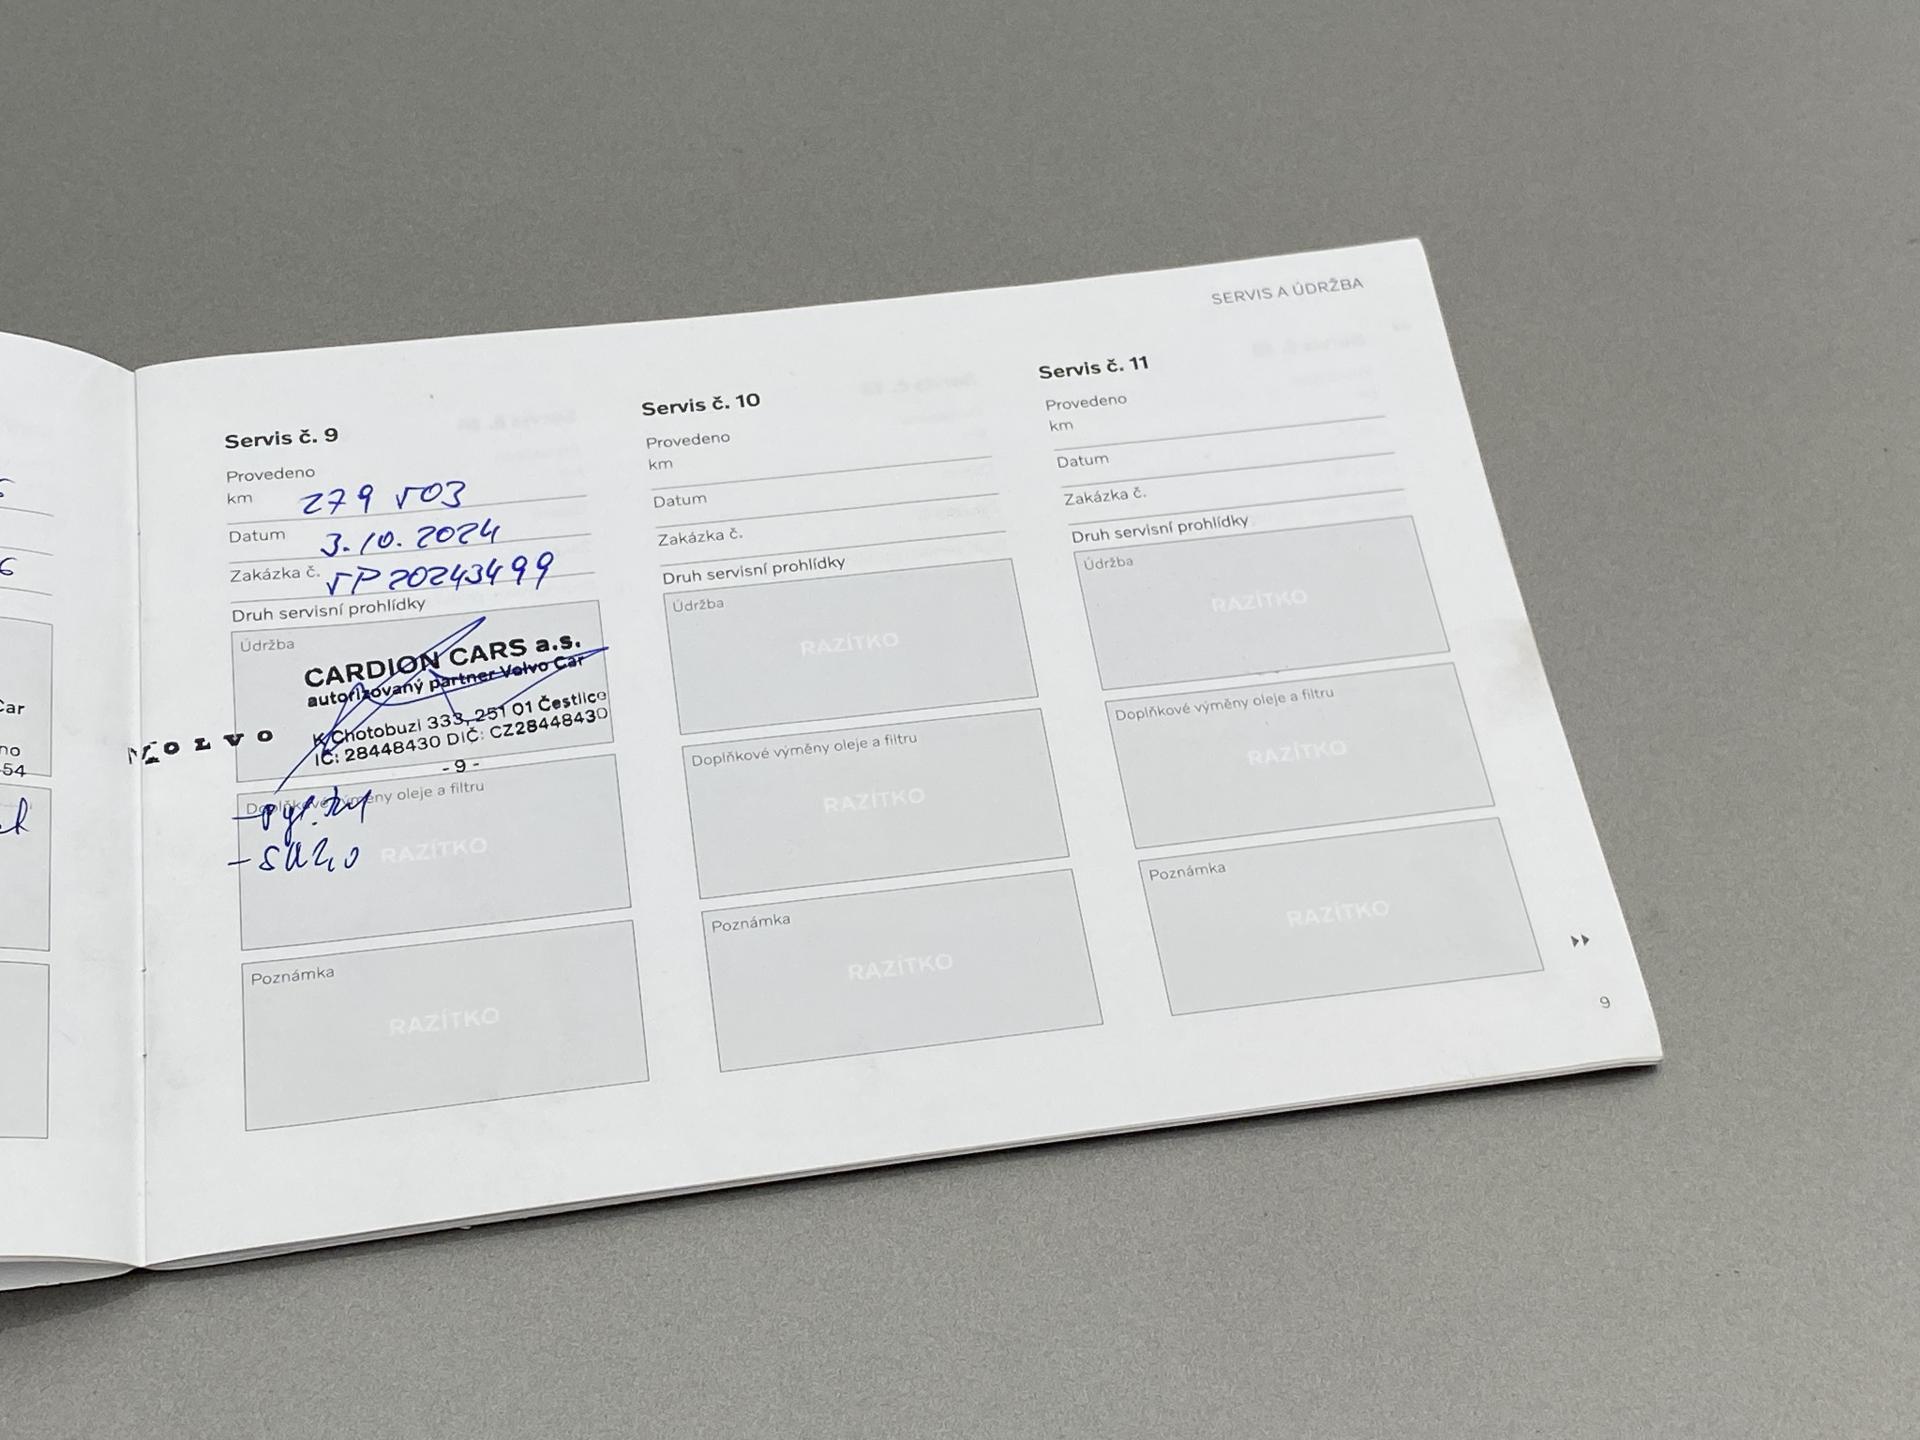 SERVIS A ÚDRŽBA
Servis č. 9
Provedeno
km 279 503
Datum 3.10.2024
Zakázka č. VP20243499
Druh servisní prohlídky
Údržba
CARDION CARS a.s.
autorizovaný partner Volvo Car
K Chotobuzi 333, 251 01 Čestlice
IČ: 28448430 DIČ: CZ28448430
- 9 -
VOLVO
Doplňkové výměny oleje a filtru
RAZÍTKO
Poznámka
RAZÍTKO
Servis č. 10
Provedeno
km
Datum
Zakázka č.
Druh servisní prohlídky
Údržba
RAZÍTKO
Doplňkové výměny oleje a filtru
RAZÍTKO
Poznámka
RAZÍTKO
Servis č. 11
Provedeno
km
Datum
Zakázka č.
Druh servisní prohlídky
Údržba
RAZÍTKO
Doplňkové výměny oleje a filtru
RAZÍTKO
Poznámka
RAZÍTKO
9
Car
no
54